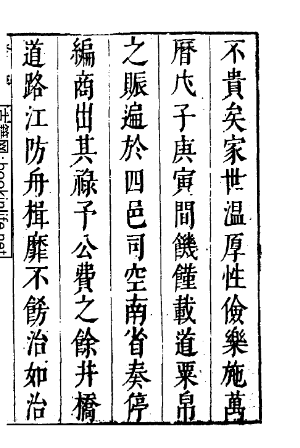 不貴矣家世溫厚性儉樂施萬
曆戊子庚寅間饑饉載道粟帛
之賑遍於四邑司空南省奏停
編商出其祿予公費之餘井橋
道路江防舟楫靡不飭治如治